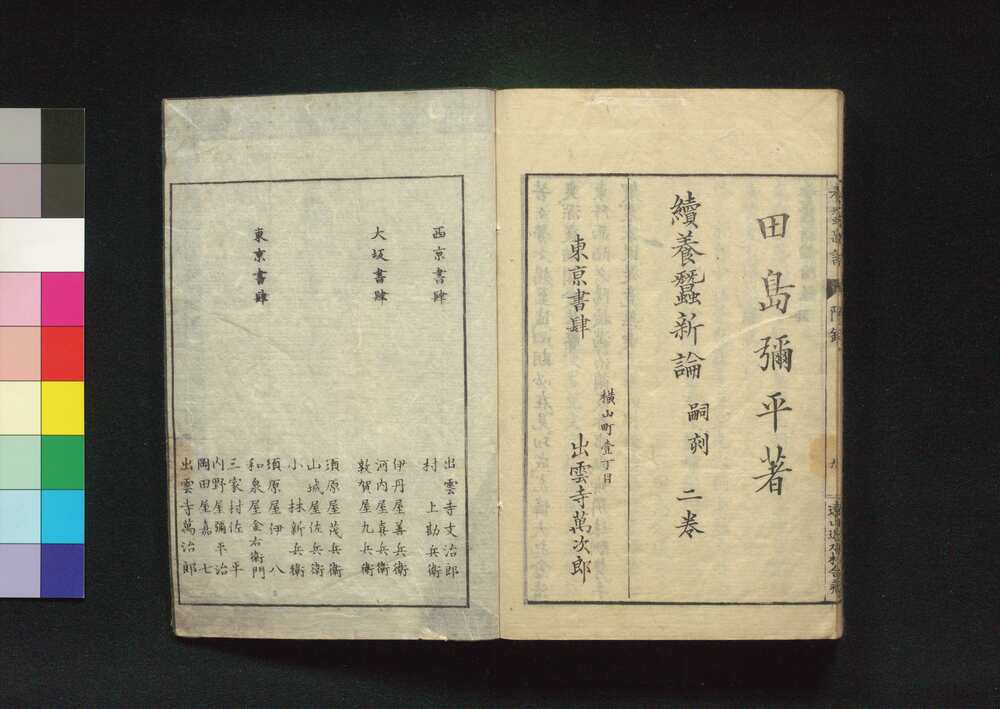 田島彌平著
續養蠶新論 嗣刻 二卷
東京書肆
橫山町壹丁目
出雲寺萬次郎
附錄
西京書肆
出雲寺文治郎
村上勘兵衛
大坂書肆
伊丹屋善兵衛
河内屋喜兵衛
敦賀屋九兵衛
東京書肆
須原屋茂兵衛
山城屋佐兵衛
小林新兵衛
須原屋伊八
和泉屋金右衛門
三家村佐平
内野屋彌平治
岡田屋嘉七
出雲寺萬治郎